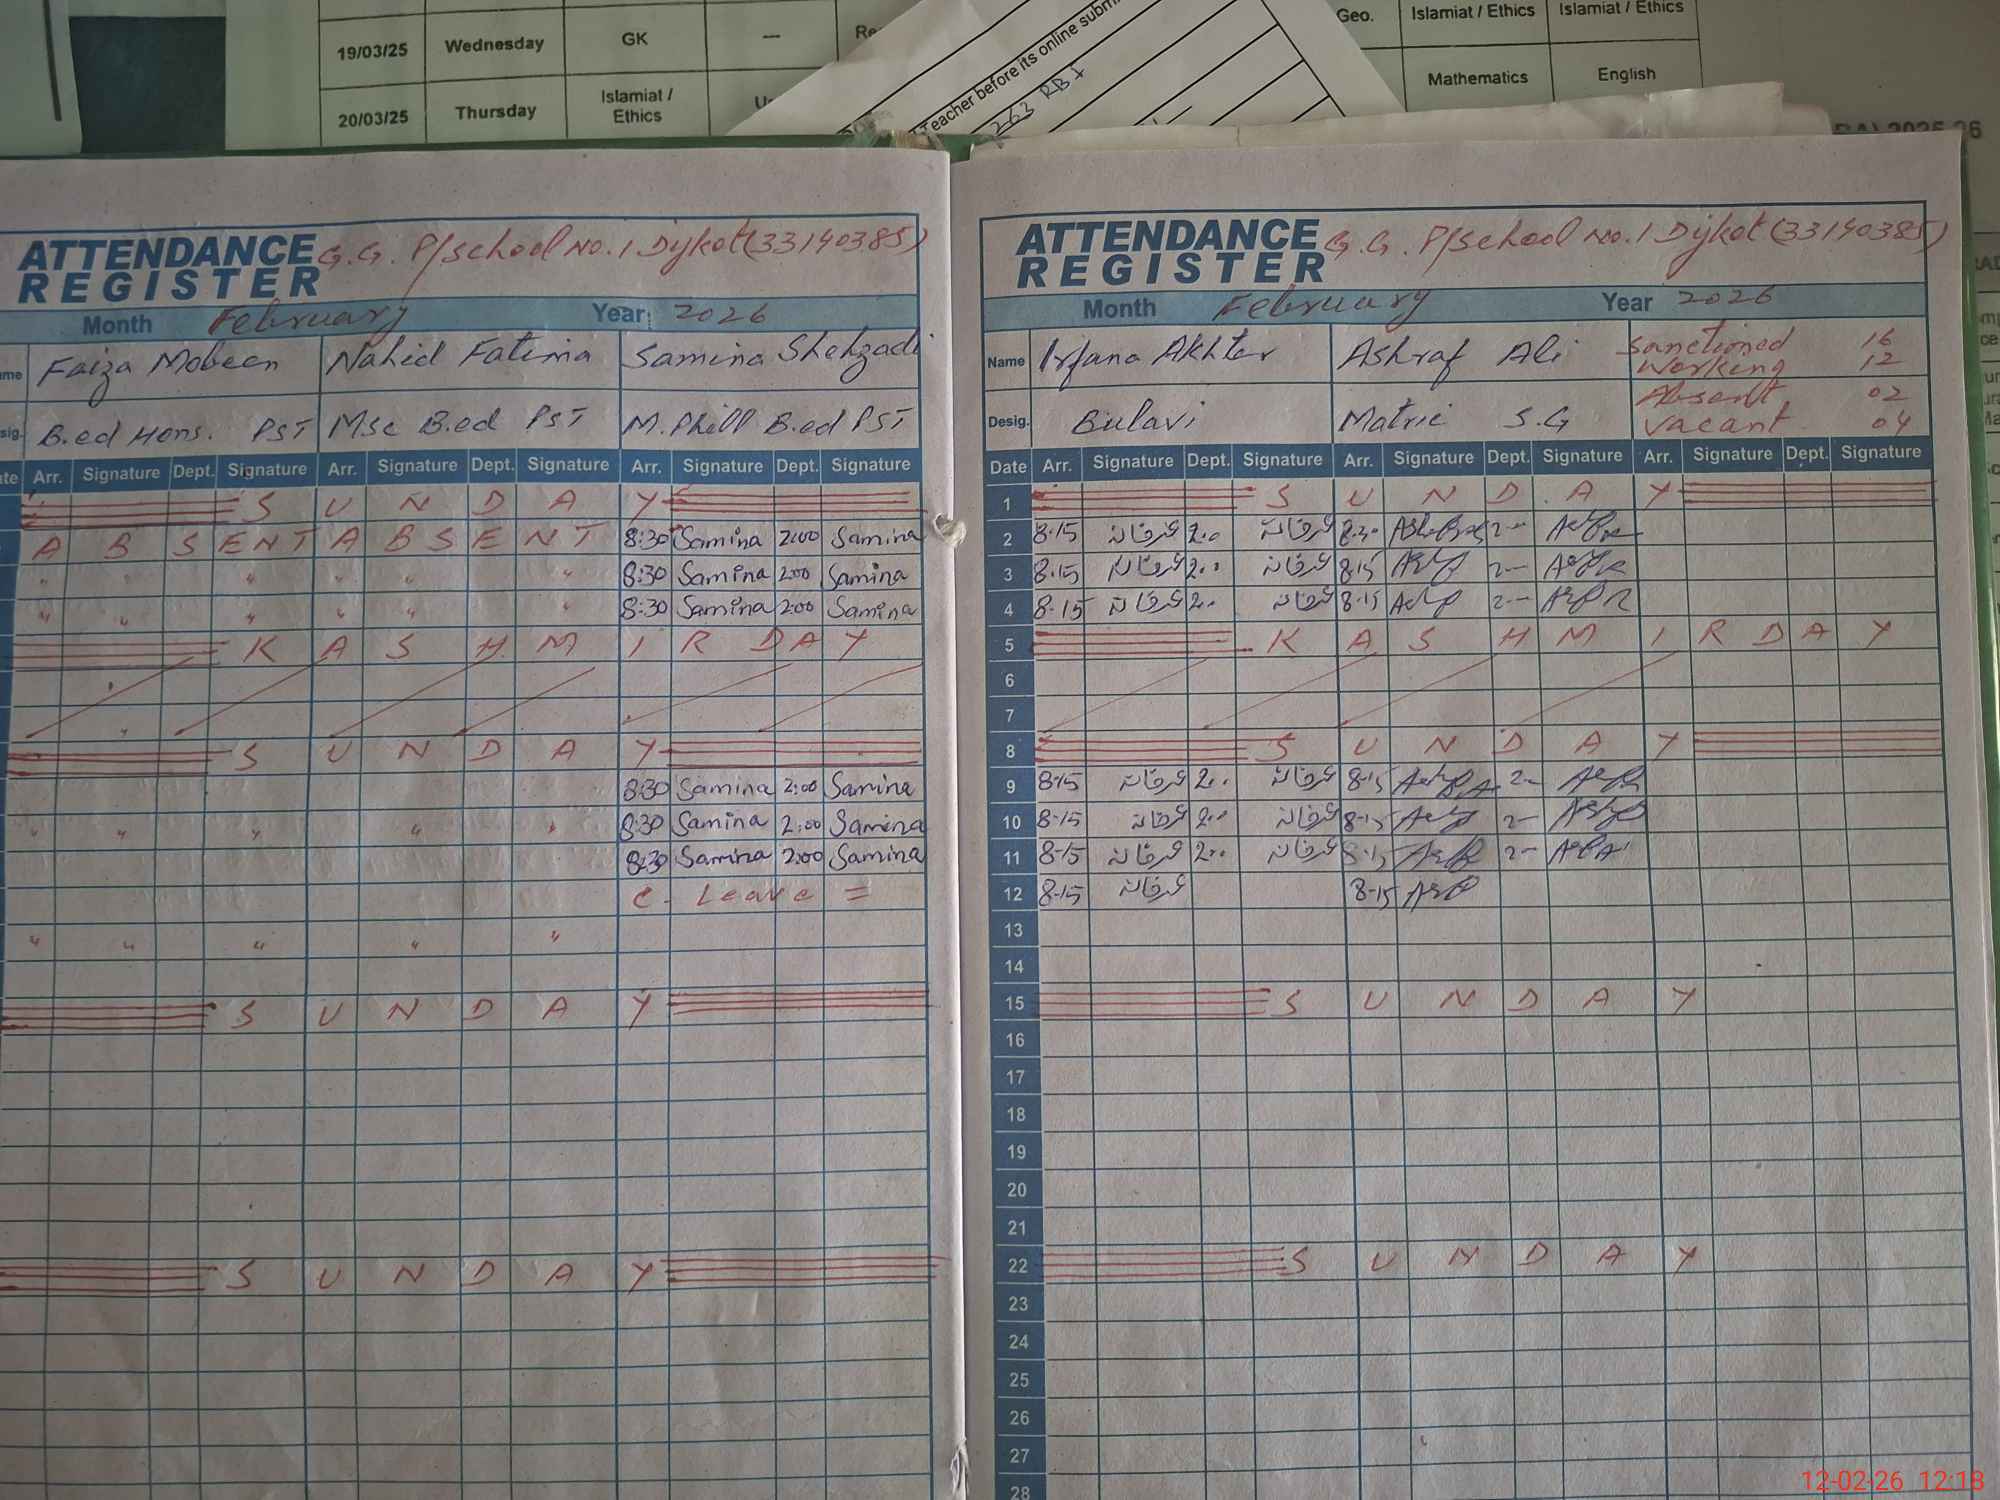 19/03/25 Wednesday GK —
20/03/25 Thursday Islamiat / Ethics
Teacher before its online
263 RB I
Geo. Islamiat / Ethics Islamiat / Ethics
Mathematics English
2025-26
ATTENDANCE REGISTER G.G. P/School No.1 Dijkot (33140385)
Month February Year 2026
Faiza Mobeen Nahid Fatima Samina Shehzadi
B.ed Hons. PST MSc B.ed PST M.Phill B.ed PST
Arr. Signature Dept. Signature Arr. Signature Dept. Signature Arr. Signature Dept. Signature
S U N D A Y
A B S E N T A B S E N T 8:30 Samina 2:00 Samina
" " " " " " 8:30 Samina 2:00 Samina
" " " " " " 8:30 Samina 2:00 Samina
K A S H M I R D A Y
S U N D A Y
8:30 Samina 2:00 Samina
" " " " " 8:30 Samina 2:00 Samina
8:30 Samina 2:00 Samina
C. Leave =
" " " " "
S U N D A Y
S U N D A Y
ATTENDANCE REGISTER G.G. P/School No.1 Dijkot (33140385)
Month February Year 2026
Name Irfana Akhter Ashraf Ali Sanctioned 16
Working 12
Absent 02
Desig. Bulavi Matric S.G Vacant 04
Date Arr. Signature Dept. Signature Arr. Signature Dept. Signature Arr. Signature Dept. Signature
1 S U N D A Y
2 8-15 عرفانہ 2.0 عرفانہ 8-30 2-
3 8-15 عرفانہ 2.00 عرفانہ 8-15 2-
4 8-15 عرفانہ 2.0 عرفانہ 8-15 2-
5 K A S H M I R D A Y
6
7
8 S U N D A Y
9 8-15 عرفانہ 2.00 عرفانہ 8-15 2-
10 8-15 عرفانہ 2.00 عرفانہ 8-15 2-
11 8-15 عرفانہ 2.00 عرفانہ 8-15 2-
12 8-15 عرفانہ 8-15
13
14
15 S U N D A Y
16
17
18
19
20
21
22 S U N D A Y
23
24
25
26
27
28
12-02-26 12:18